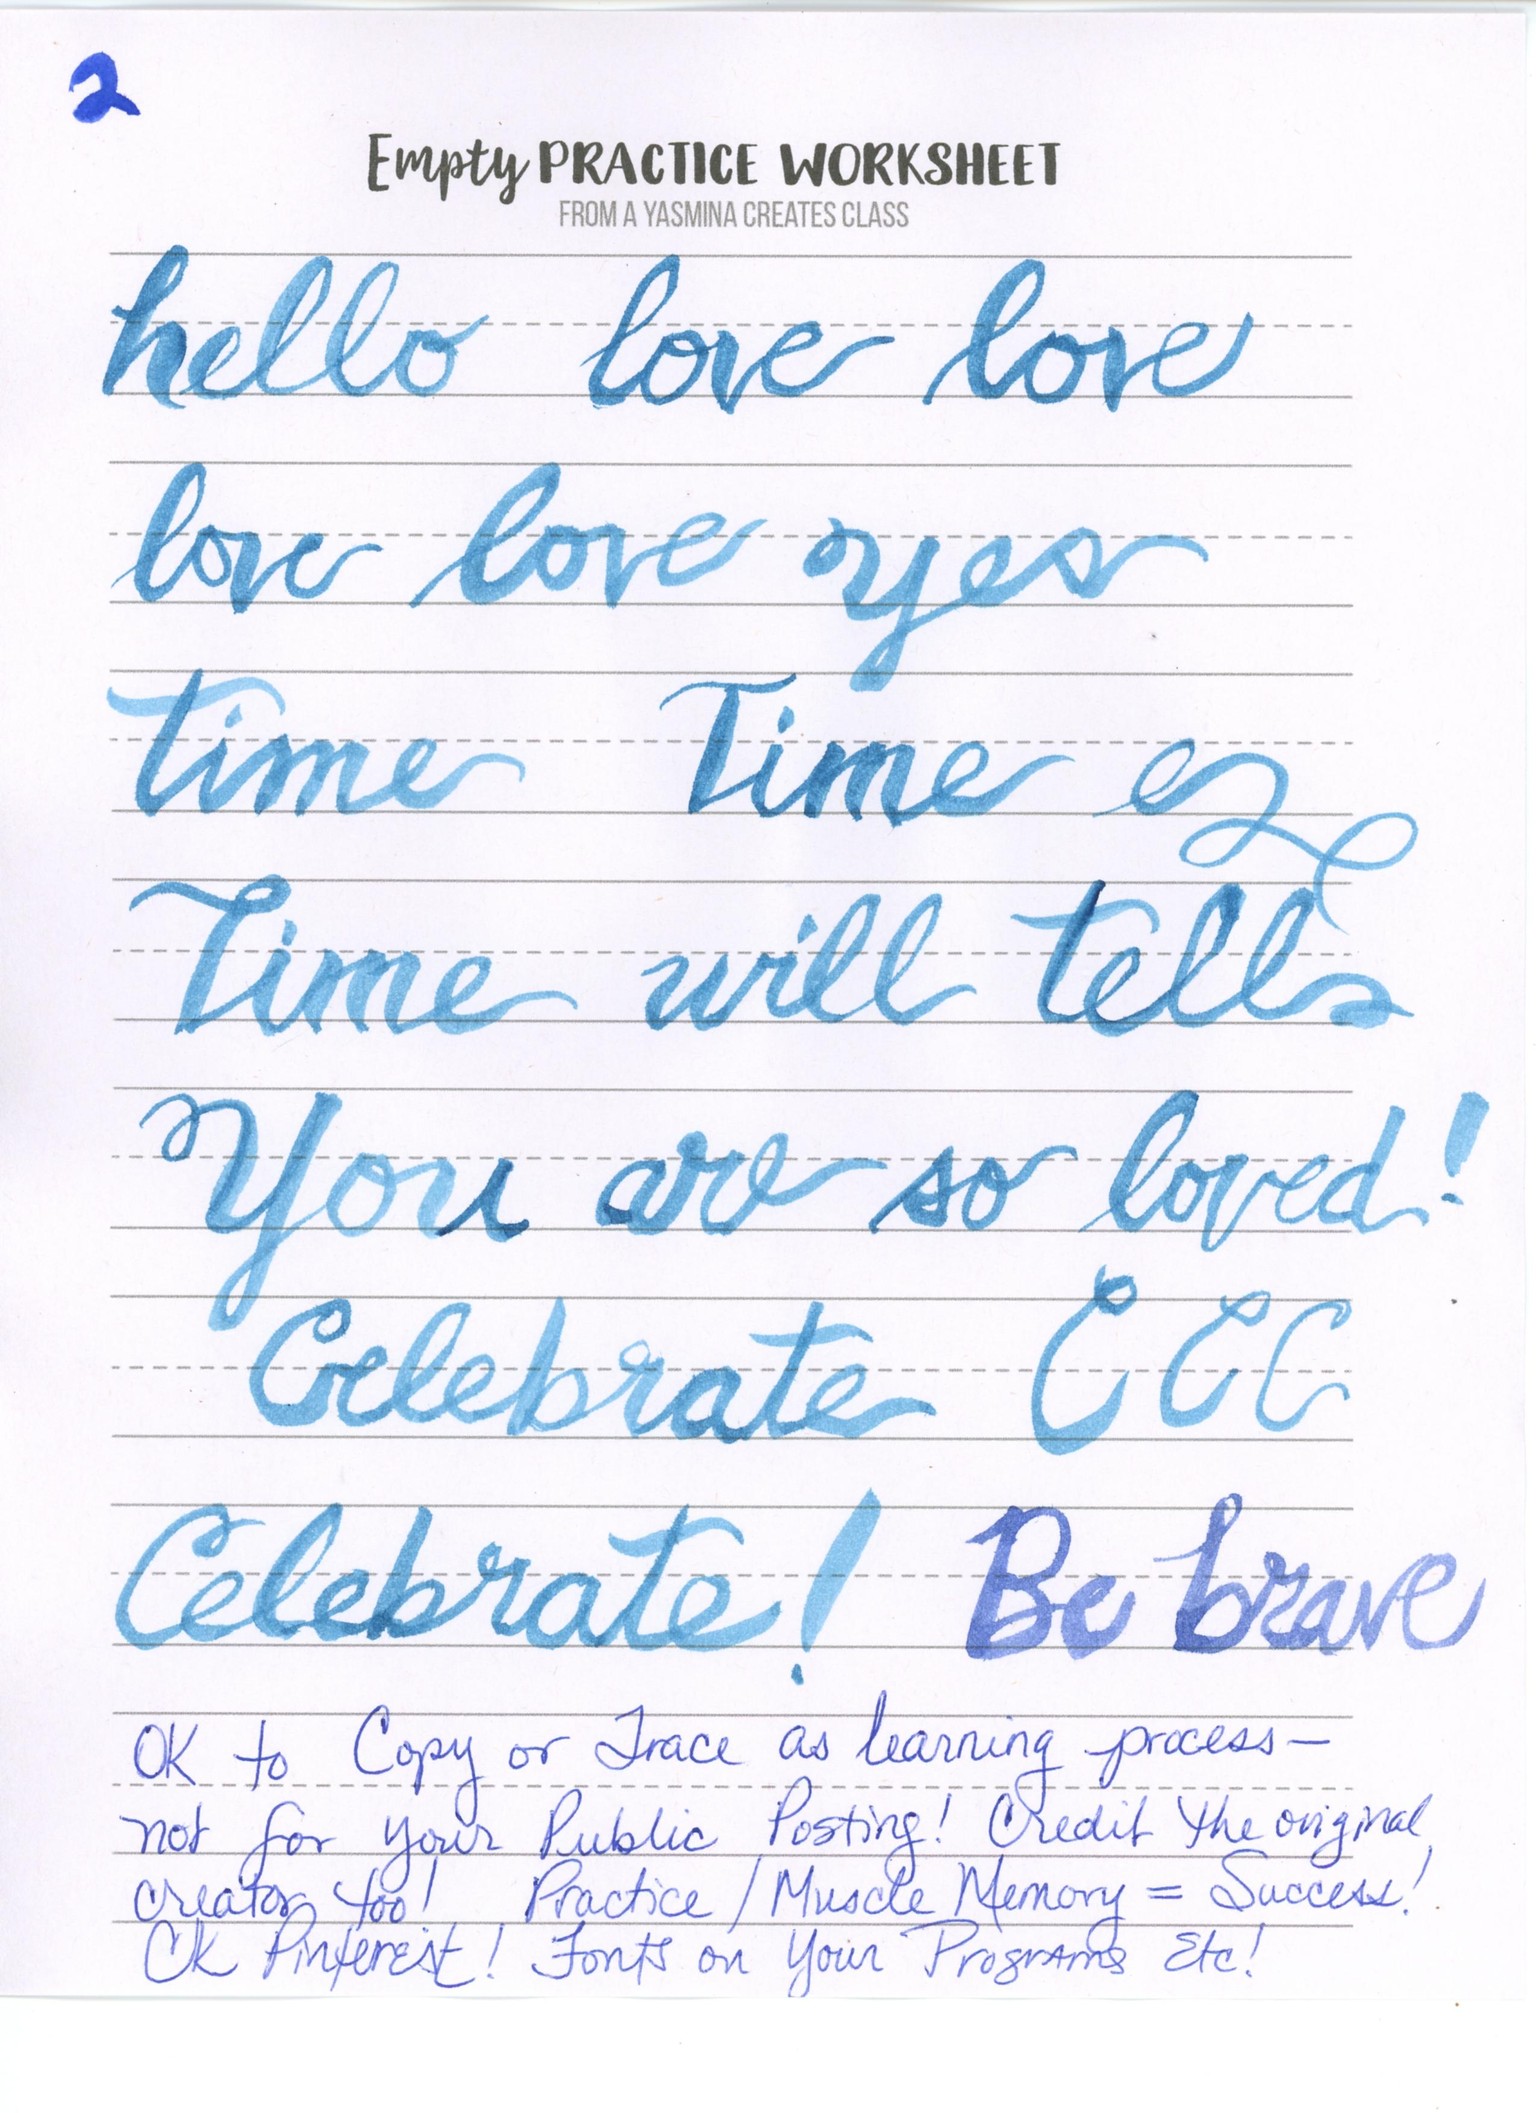 2
Empty PRACTICE WORKSHEET
FROM A YASMINA CREATES CLASS
hello love love
love love yes
time Time e
Time will tells
You are so loved!
Celebrate C C C
Celebrate! Be brave
OK to Copy or Trace as learning process—
not for your Public Posting! Credit the original
creator too! Practice / Muscle Memory = Success!
CK Pinterest! Fonts on Your Programs Etc!